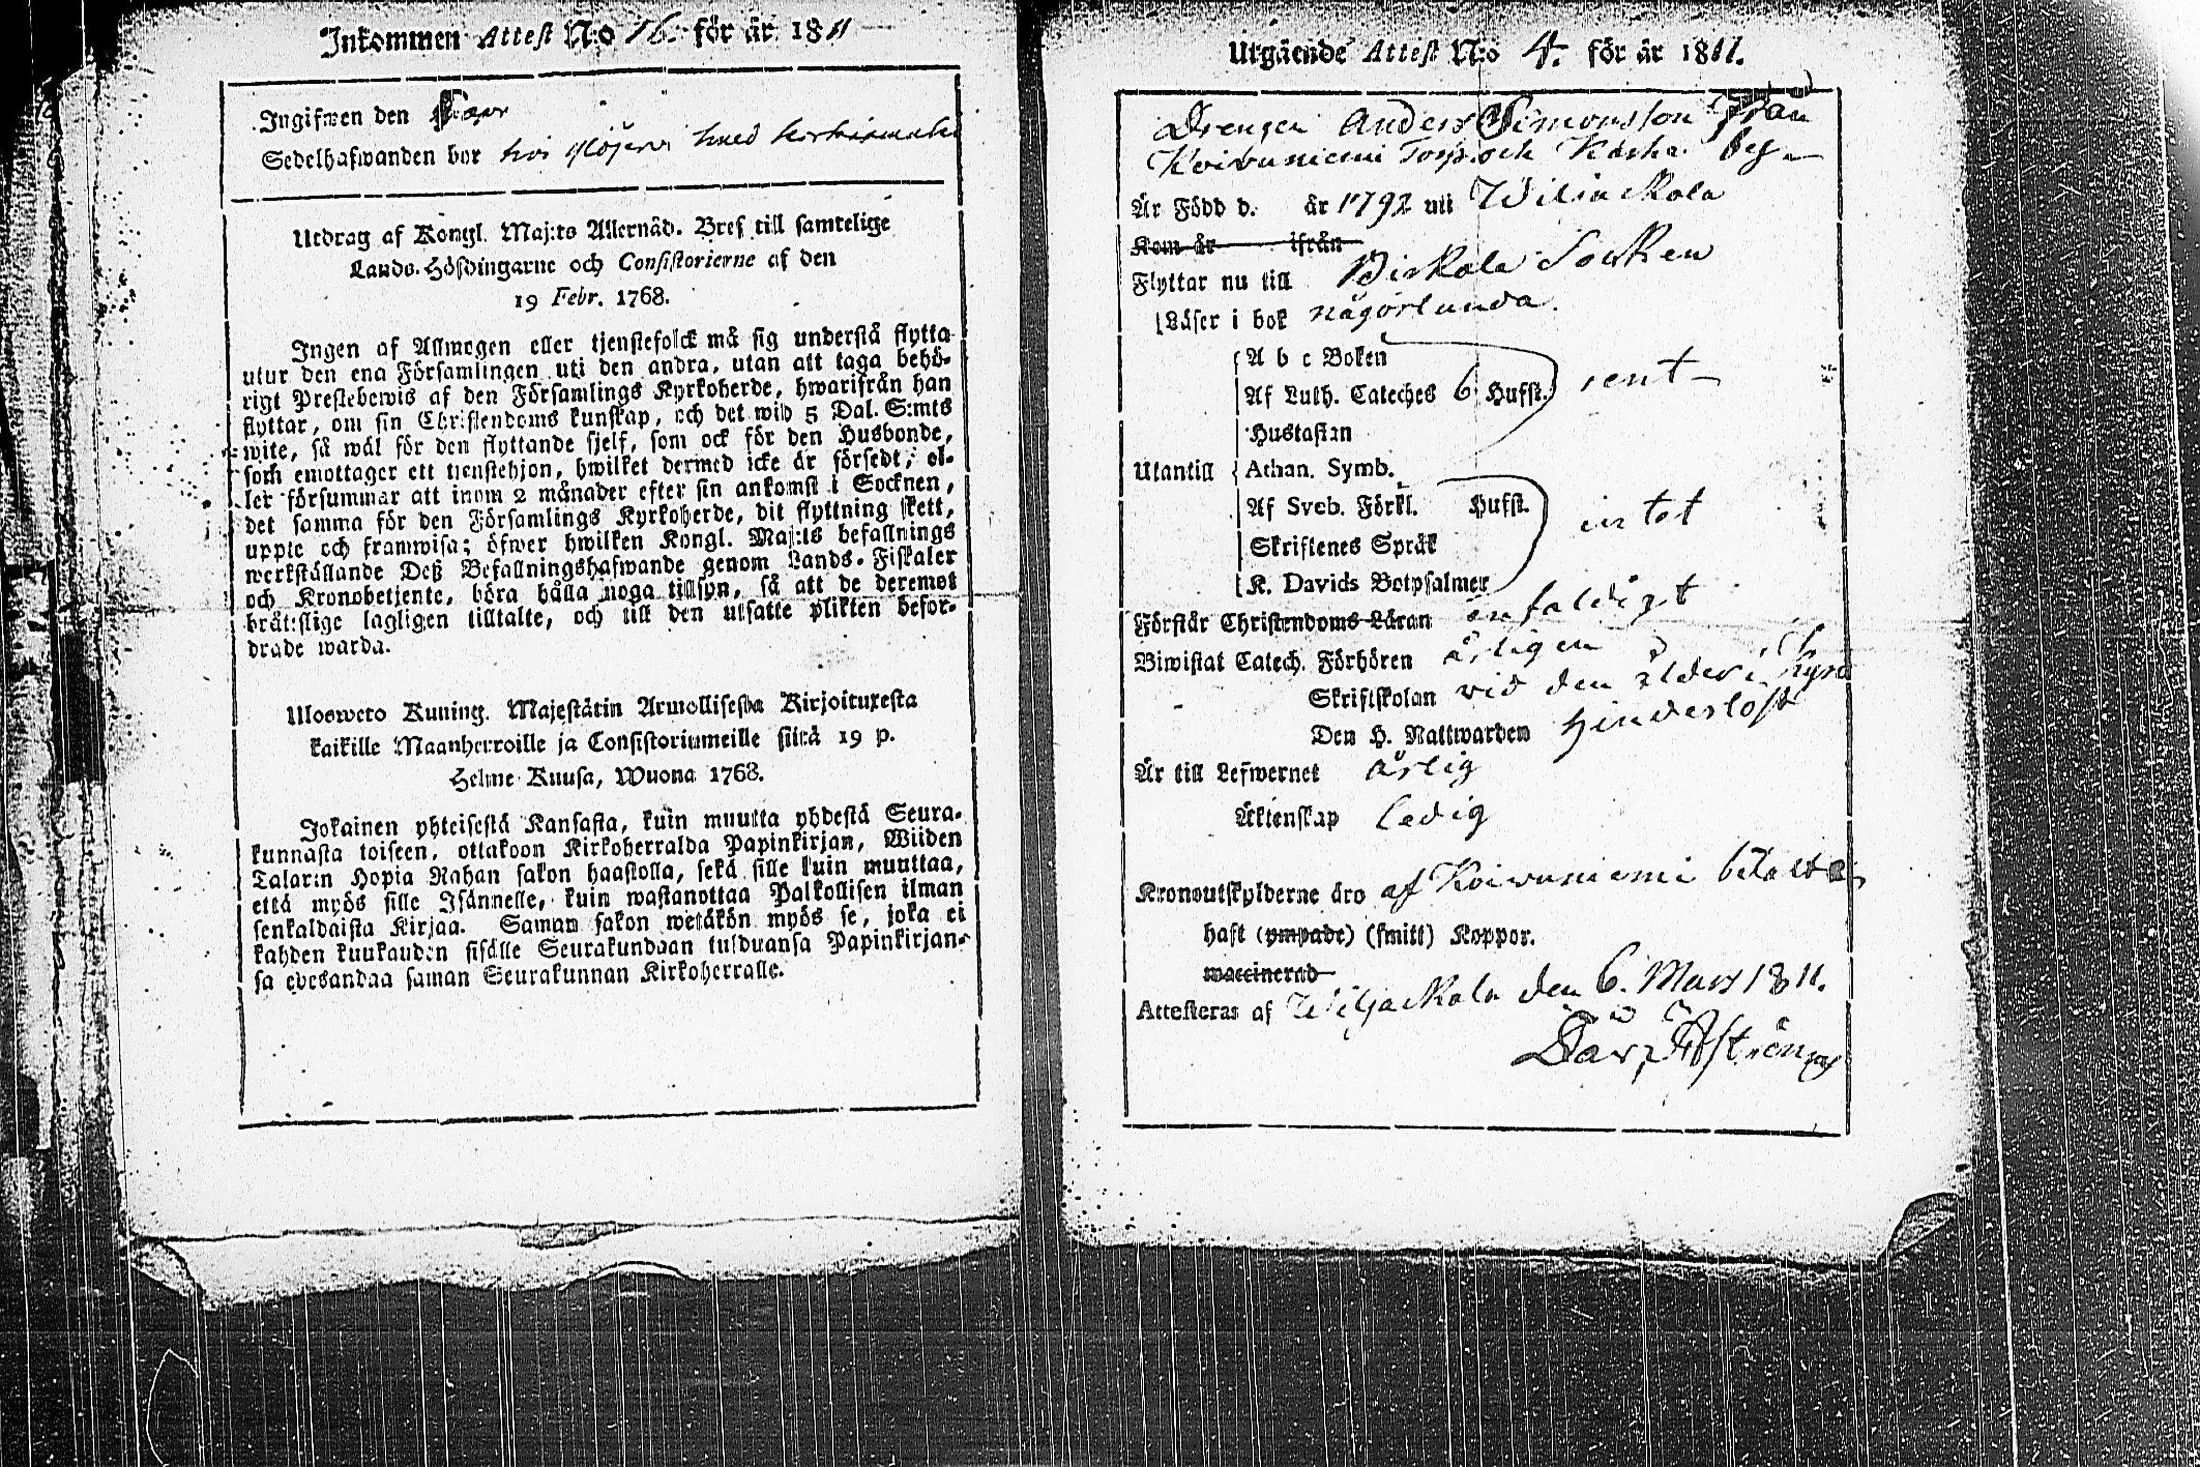 Inkommen Attest N:o 16. för år 1811
Ingifwen den
Sedelhafwanden bor hos
Utdrag af Kongl. Maj:ts Allernåd. Bref till samtelige
Lands-Höfdingarne och Consistorierne af den
19 Febr. 1768.
Ingen af Allmogen eller tjenstefolck må sig understå flytta
utur den ena Församlingen uti den andra, utan att taga behö-
rigt Prestebewis af den Församlings Kyrkoherde, hwarifrån han
flyttar, om sin Christendoms kunskap, och det wid 5 Dal. S:mts
wite, så wäl för den flyttande sjelf, som ock för den Husbonde,
som emottager ett tjenstehjon, hwilket dermed icke är försedt, el-
ler försummar att inom 2 månader efter sin ankomst i Socknen,
det samma för den Församlings Kyrkoherde, dit flyttning skett,
uppte och framwisa; öfwer hwilken Kongl. Maj:ts befallnings
werkställande Deß Befallningshafwande genom Lands-Fiskaler
och Kronobetjente, böra hålla noga tillsyn, så att de deremot
bråtslige lagligen tilltalte, och till den utsatte plikten befor-
drade warda.
Ulosweto Kuning. Majestätin Armollisesta Kirjoituxesta
kaikille Maanherroille ja Consistoriumeille siitä 19 p.
Helme Kuusa, Wuona 1768.
Jokainen yhteisestä Kansasta, kuin muutta yhdestä Seura-
kunnasta toiseen, ottakoon Kirkoherralda Papinkirjan, Wiiden
Talarin Hopia Rahan sakon haastolla, sekä sille kuin muuttaa,
että myös sille Isännelle, kuin wastanottaa Palkollisen ilman
senkaldaista Kirjaa. Saman sakon wetäkön myös se, joka ei
kahden kuukauden sisälle Seurakundaan tulduansa Papinkirjan-
sa edesandaa saman Seurakunnan Kirkoherralle.
Utgående Attest N:o 4. för år 1811.
Drengen Anders Simonsson från
Koivuniemi Torp och Kosha by
Är Född d. år 1792 uti Wiliakkala
Kom år ifrån
Flyttar nu till Birkala Socken
Läser i bok någorlunda.
A b c Boken
Af Luth. Cateches 6 Hufst. rent
Hustaflan
Utantill Athan. Symb.
Af Sveb. Förkl. Hufst. intet
Skriftenes Språk
K. Davids Botpsalmer
Förstår Christendoms Läran enfaldigt
Biwistat Catech. Förhören årligen
Skriftskolan vid den ålder i
Den H. Nattwarden hinderlöst
Är till Lefwernet ärlig
Äktenskap ledig
Kronoutskylderne äro af Koivuniemi betalta
haft (ympade) (smitt) Koppor.
waccinerad
Attesteras af Wiljakkala den 6. Mars 1811.